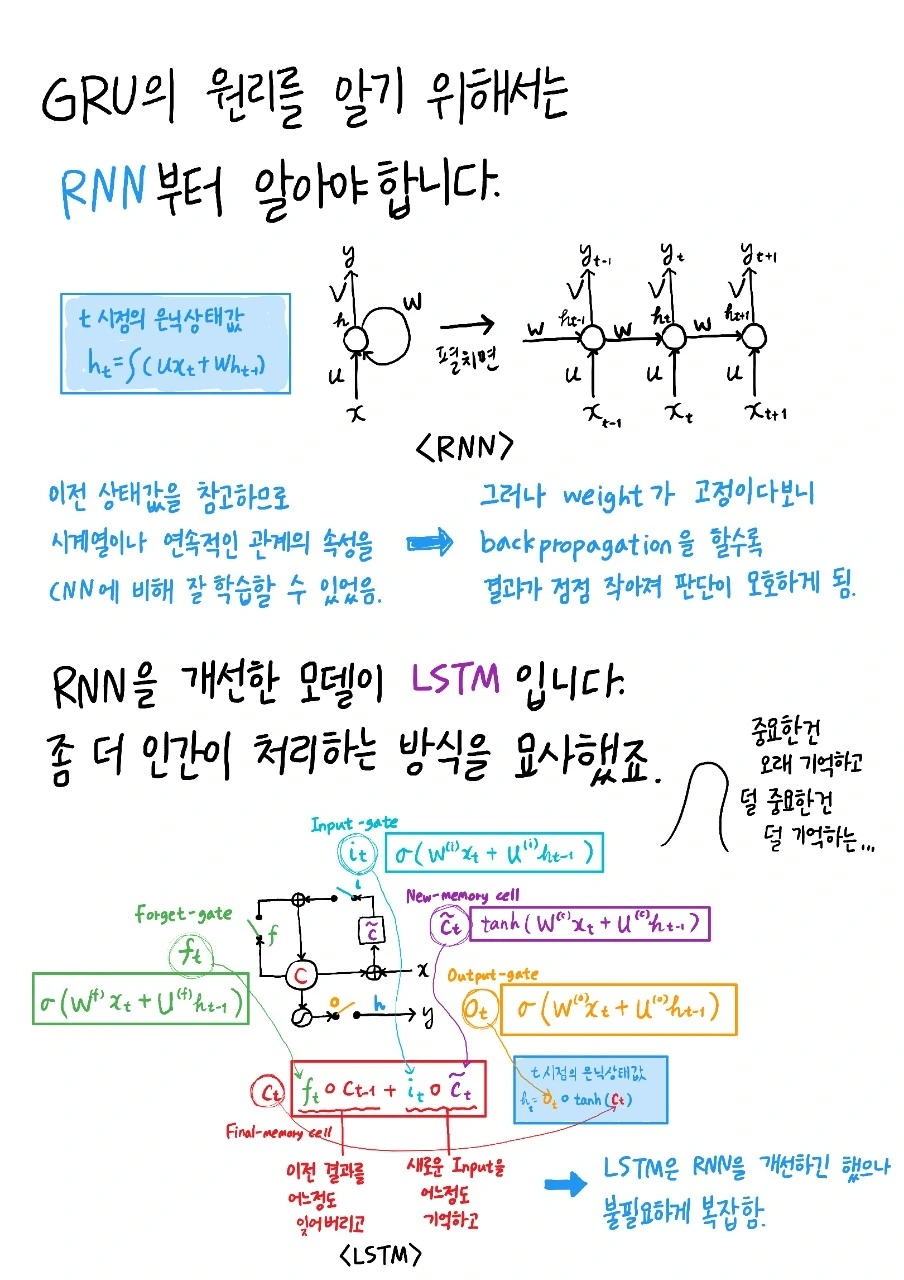 GRU의 원리를 알기 위해서는
RNN부터 알아야합니다.
t 시점의 은닉상태값
h_t = ∫(Ux_t + Wh_{t-1})
y
V
h
W
U
x
펼치면
y_{t-1} y_t y_{t+1}
V V V
W h_{t-1} W h_t W h_{t+1}
U U U
x_{t-1} x_t x_{t+1}
<RNN>
이전 상태값을 참고하므로
시계열이나 연속적인 관계의 속성을
CNN에 비해 잘 학습할 수 있었음.
그러나 weight가 고정이다보니
backpropagation을 할수록
결과가 점점 작아져 판단이 모호하게 됨.
RNN을 개선한 모델이 LSTM 입니다.
좀 더 인간이 처리하는 방식을 묘사했죠.
중요한건
오래 기억하고
덜 중요한건
덜 기억하는...
Input-gate
i_t σ(W^{(i)}x_t + U^{(i)}h_{t-1})
New-memory cell
c̃_t tanh(W^{(c)}x_t + U^{(c)}h_{t-1})
Forget-gate
f_t
σ(W^{(f)}x_t + U^{(f)}h_{t-1})
i
f
c̃
C
x
o
h
y
Output-gate
O_t σ(W^{(o)}x_t + U^{(o)}h_{t-1})
C_t f_t o C_{t-1} + i_t o c̃_t
Final-memory cell
t 시점의 은닉상태값
h_t = O_t o tanh(C_t)
이전 결과를
어느정도
잊어버리고
새로운 Input을
어느정도
기억하고
LSTM은 RNN을 개선하긴 했으나
불필요하게 복잡함.
<LSTM>